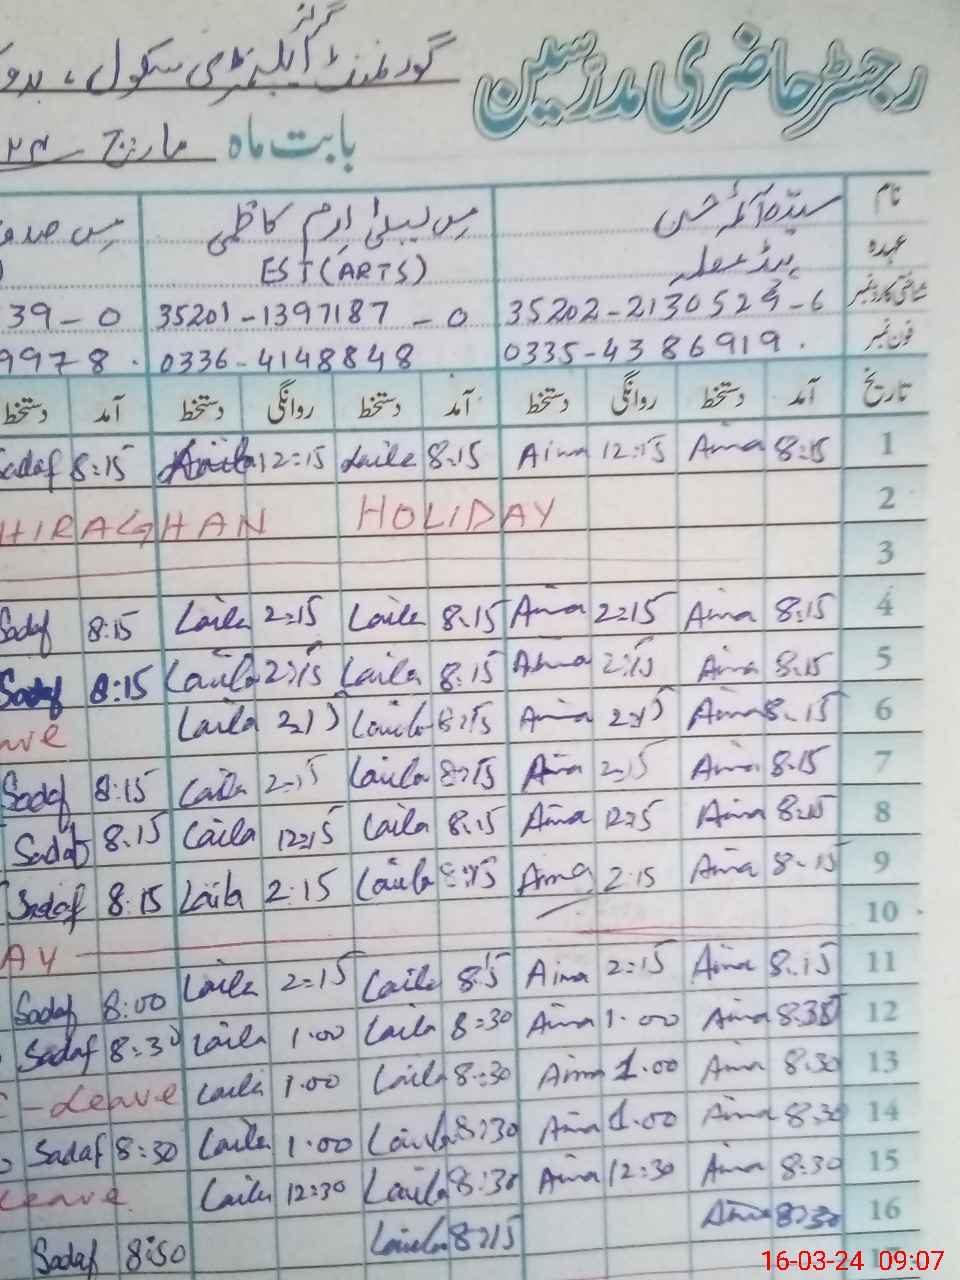 رجسٹر حاضری مدرسین گورنمنٹ گرلز ایلیمنٹری سکول،
بابت ماہ مارچ ٢٤
نام سیّدہ آئمہ حسن مس لیلیٰ ارم کاظمی مس صدف
عہدہ ہیڈ معلمہ EST (ARTS)
شناختی کارڈ نمبر 35202-2130529-6 35201-1397187-0 39-0
فون نمبر 0335-4386919. 0336-4148848 9978.
تاریخ آمد دستخط روانگی دستخط آمد دستخط روانگی دستخط آمد دستخط
1 8:15 Aima 12:15 Aima 8:15 Laila 12:15 Laila 8:15 Sadaf
2 HIRAGHAN HOLIDAY
3
4 8:15 Aima 2:15 Aima 8:15 Laila 2:15 Laila 8:15 Sadaf
5 8:15 Aima 2:15 Aima 8:15 Laila 2:15 Laila 8:15 Sadaf
6 8:15 Aima 2:15 Aima 8:15 Laila 2:15 Laila ave
7 8:15 Aima 2:15 Aima 8:15 Laila 2:15 Laila 8:15 Sadaf
8 8:15 Aima 12:15 Aima 8:15 Laila 12:15 Laila 8.15 Sadaf
9 8:15 Aima 2:15 Aima 8:15 Laila 2:15 Laila 8:15 Sadaf
10 AY
11 8:15 Aima 2:15 Aima 8:15 Laila 2:15 Laila 8:00 Sadaf
12 8:30 Aima 1.00 Aima 8:30 Laila 1.00 Laila 8:30 Sadaf
13 8:30 Aima 1.00 Aima 8:30 Laila 1.00 Laila -Leave
14 8:30 Aima 1.00 Aima 8:30 Laila 1.00 Laila 8:30 Sadaf
15 8:30 Aima 12:30 Aima 8:30 Laila 12:30 Laila Leave
16 8:30 Aima 8:15 Laila 8:50 Sadaf
17
16-03-24 09:07